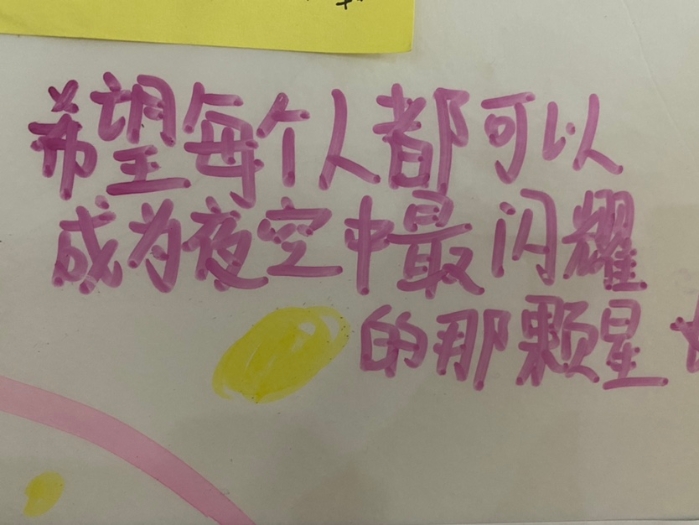 希望每个人都可以
成为夜空中最闪耀
的那颗星